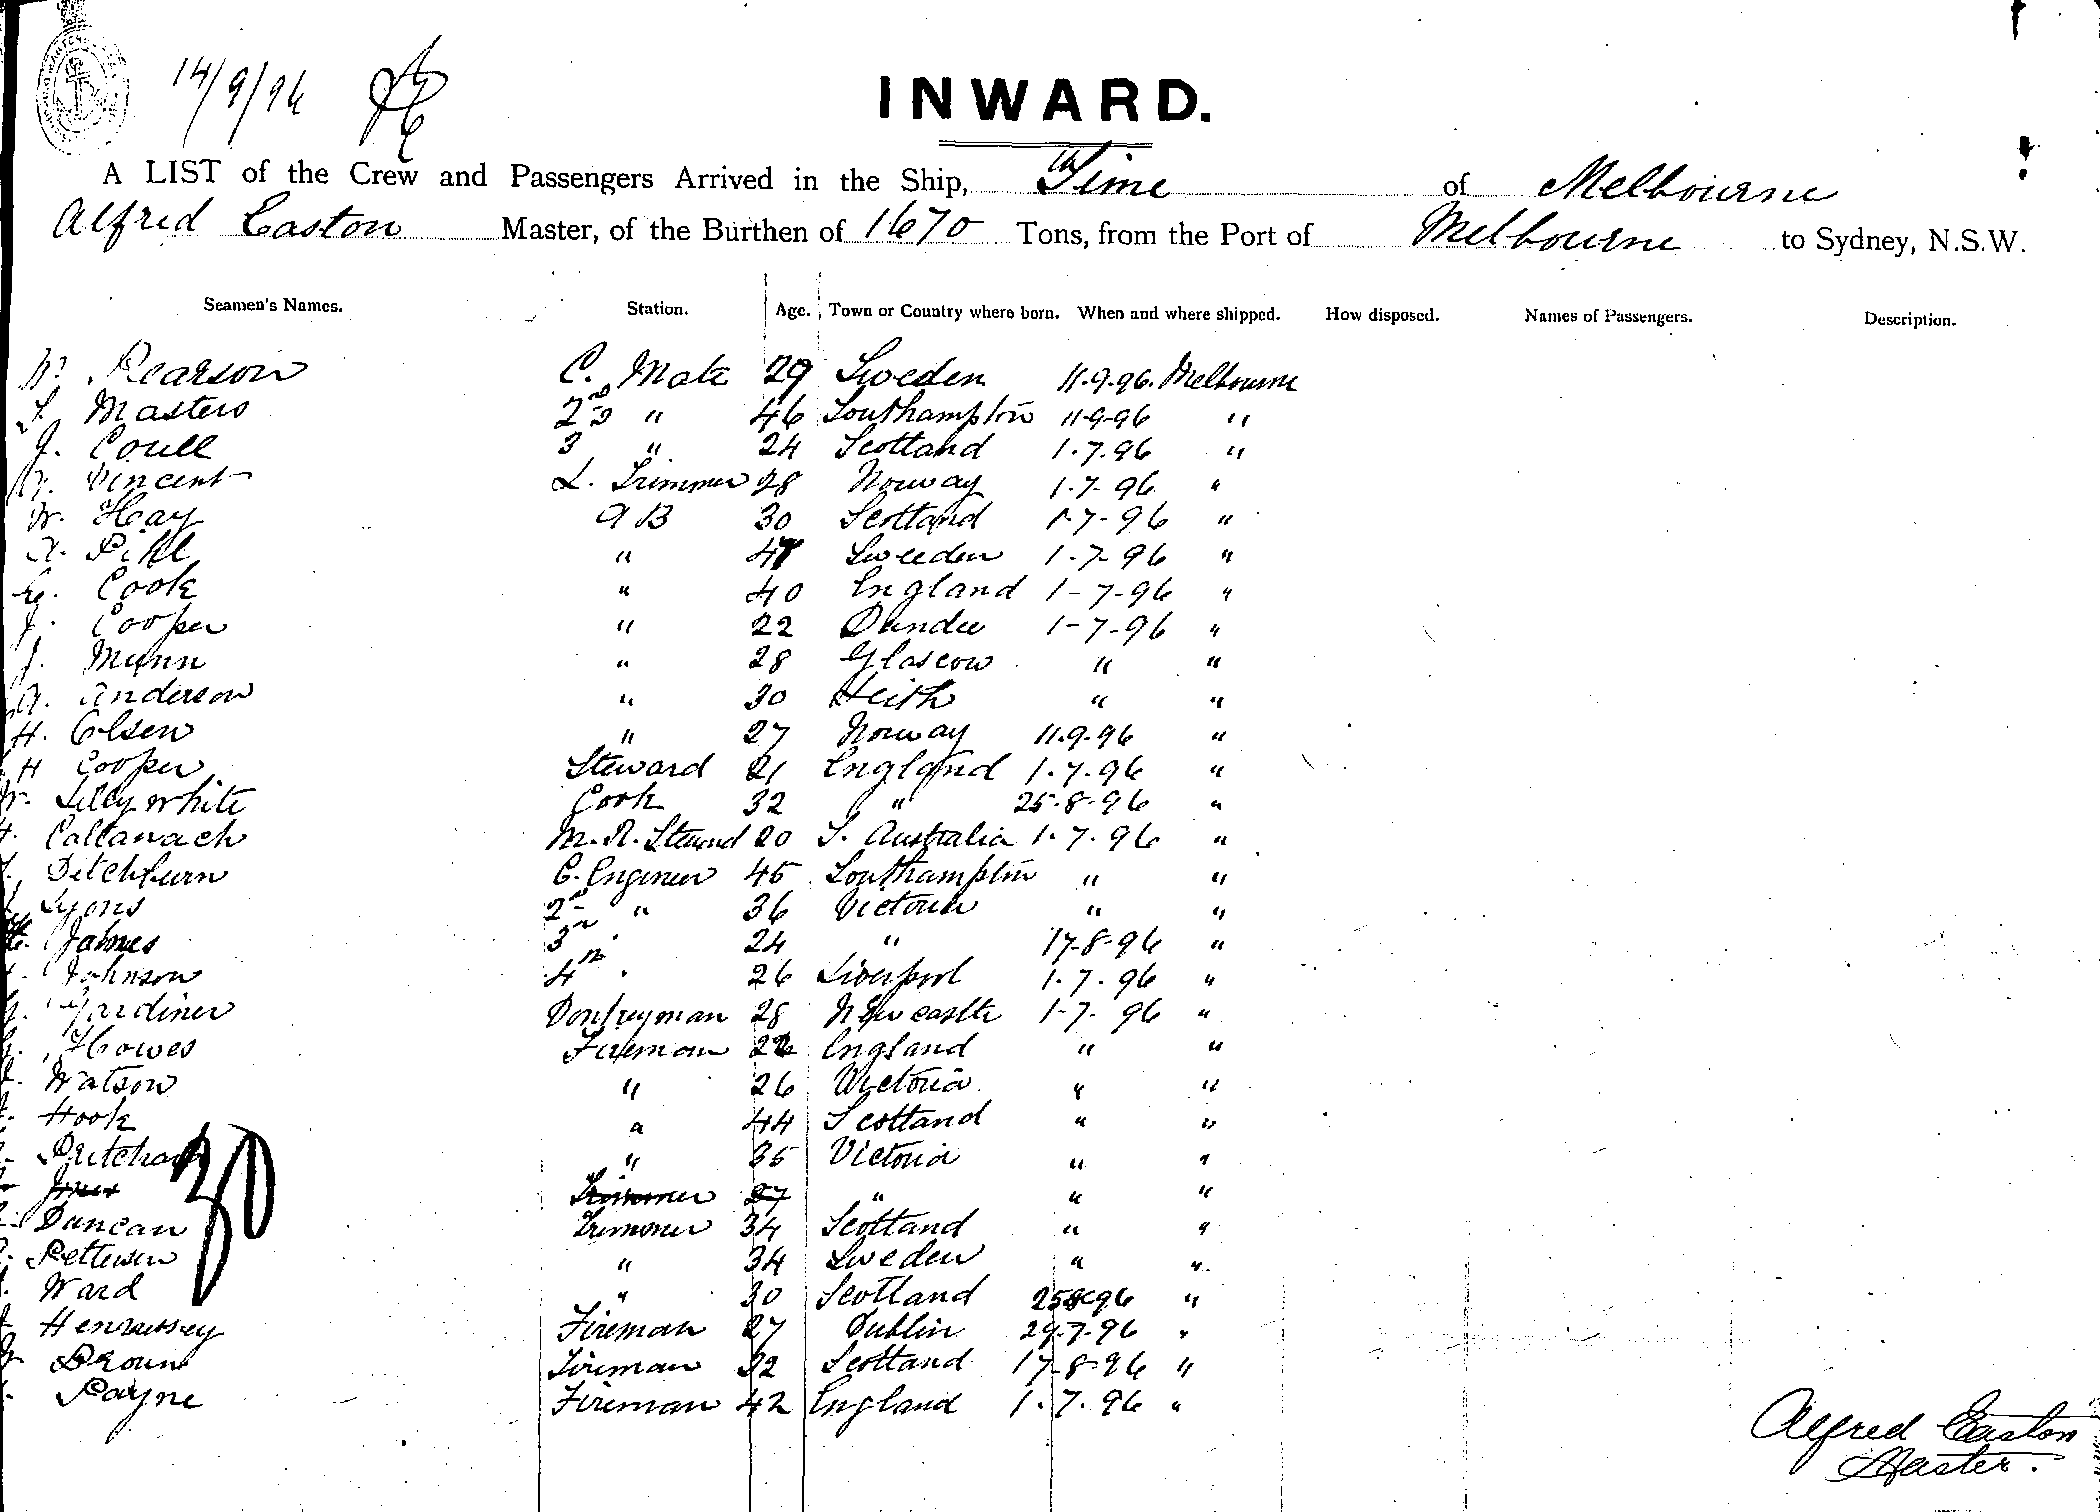 14/9/96
INWARD.
A LIST of the Crew and Passengers Arrived in the Ship, Time of Melbourne
Alfred Easton Master, of the Burthen of 1670 Tons, from the Port of Melbourne to Sydney, N.S.W.
Seamen's Names. Station. Age. Town or Country where born. When and where shipped. How disposed. Names of Passengers. Description.
Pearson C. Mate 29 Sweden 11.9.96. Melbourne
Masters 2nd " 46 Southampton 11-9-96 "
J. Coull 3 " 24 Scotland 1.7.96 "
Vincent L. Trimmer 28 Norway 1.7.96 "
W. Hay AB 30 Scotland 1-7-96 "
A. Pihl " Sweeden 1.7-96 "
Cook " 40 England 1-7-96 "
J. Cooper " 22 Dundee 1-7-96 "
J. Munn " 28 Glascow " "
A. Anderson " 30 Leith " "
H. Olsen " 27 Norway 11.9.96 "
H Cooper Steward 21 England 1.7.96 "
W. Lillywhite Cook 32 " 25-8-96 "
Callanach M.R. Steward 20 S. Australia 1.7.96 "
Ditchburn C. Engineer 45 Southampton " "
Lyons 2nd " 36 Victoria " "
James 3rd " 24 " 17-8-96 "
Johnson 4th " 26 Liverpool 1.7.96 "
Gardiner Donkeyman 28 Newcastle 1-7-96 "
Howes Fireman England " "
Watson " 26 Victoria " "
Hook " 44 Scotland " "
Pritchard " 35 Victoria " "
Jones Trimmer 27 " " "
Duncan Trimmer 34 Scotland " "
Pettersen " 34 Sweden " "
Ward " 30 Scotland 25.8.96 "
Hennessey Fireman 27 Dublin 29.7.96 "
Brown Fireman 32 Scotland 17-8-96 "
Payne Fireman 42 England 1.7.96 "
30
Alfred Easton
Master.